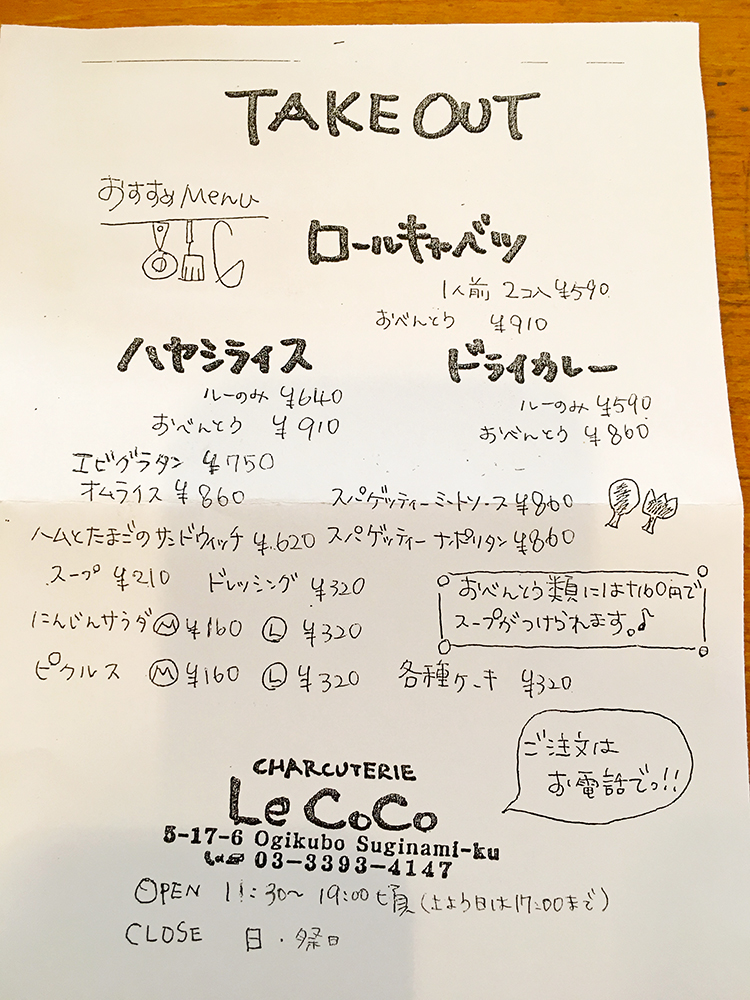 TAKE OUT
おすすめ Menu
ロールキャベツ
1人前 2コ入 ¥590
おべんとう ¥910
ハヤシライス
ルーのみ ¥640
おべんとう ¥910
ドライカレー
ルーのみ ¥590
おべんとう ¥860
エビグラタン ¥750
オムライス ¥860
スパゲッティーミートソース ¥860
ハムとたまごのサンドウィッチ ¥620
スパゲッティーナポリタン ¥860
スープ ¥210
ドレッシング ¥320
にんじんサラダ Ⓜ ¥160 Ⓛ ¥320
ピクルス Ⓜ ¥160 Ⓛ ¥320
各種ケーキ ¥320
おべんとう類には+160円で
スープがつけられます。♪
ご注文は
お電話でっ!!
CHARCUTERIE
Le CoCo
5-17-6 Ogikubo Suginami-ku
03-3393-4147
OPEN 11:30〜19:00頃(土よう日は17:00まで)
CLOSE 日・祭日